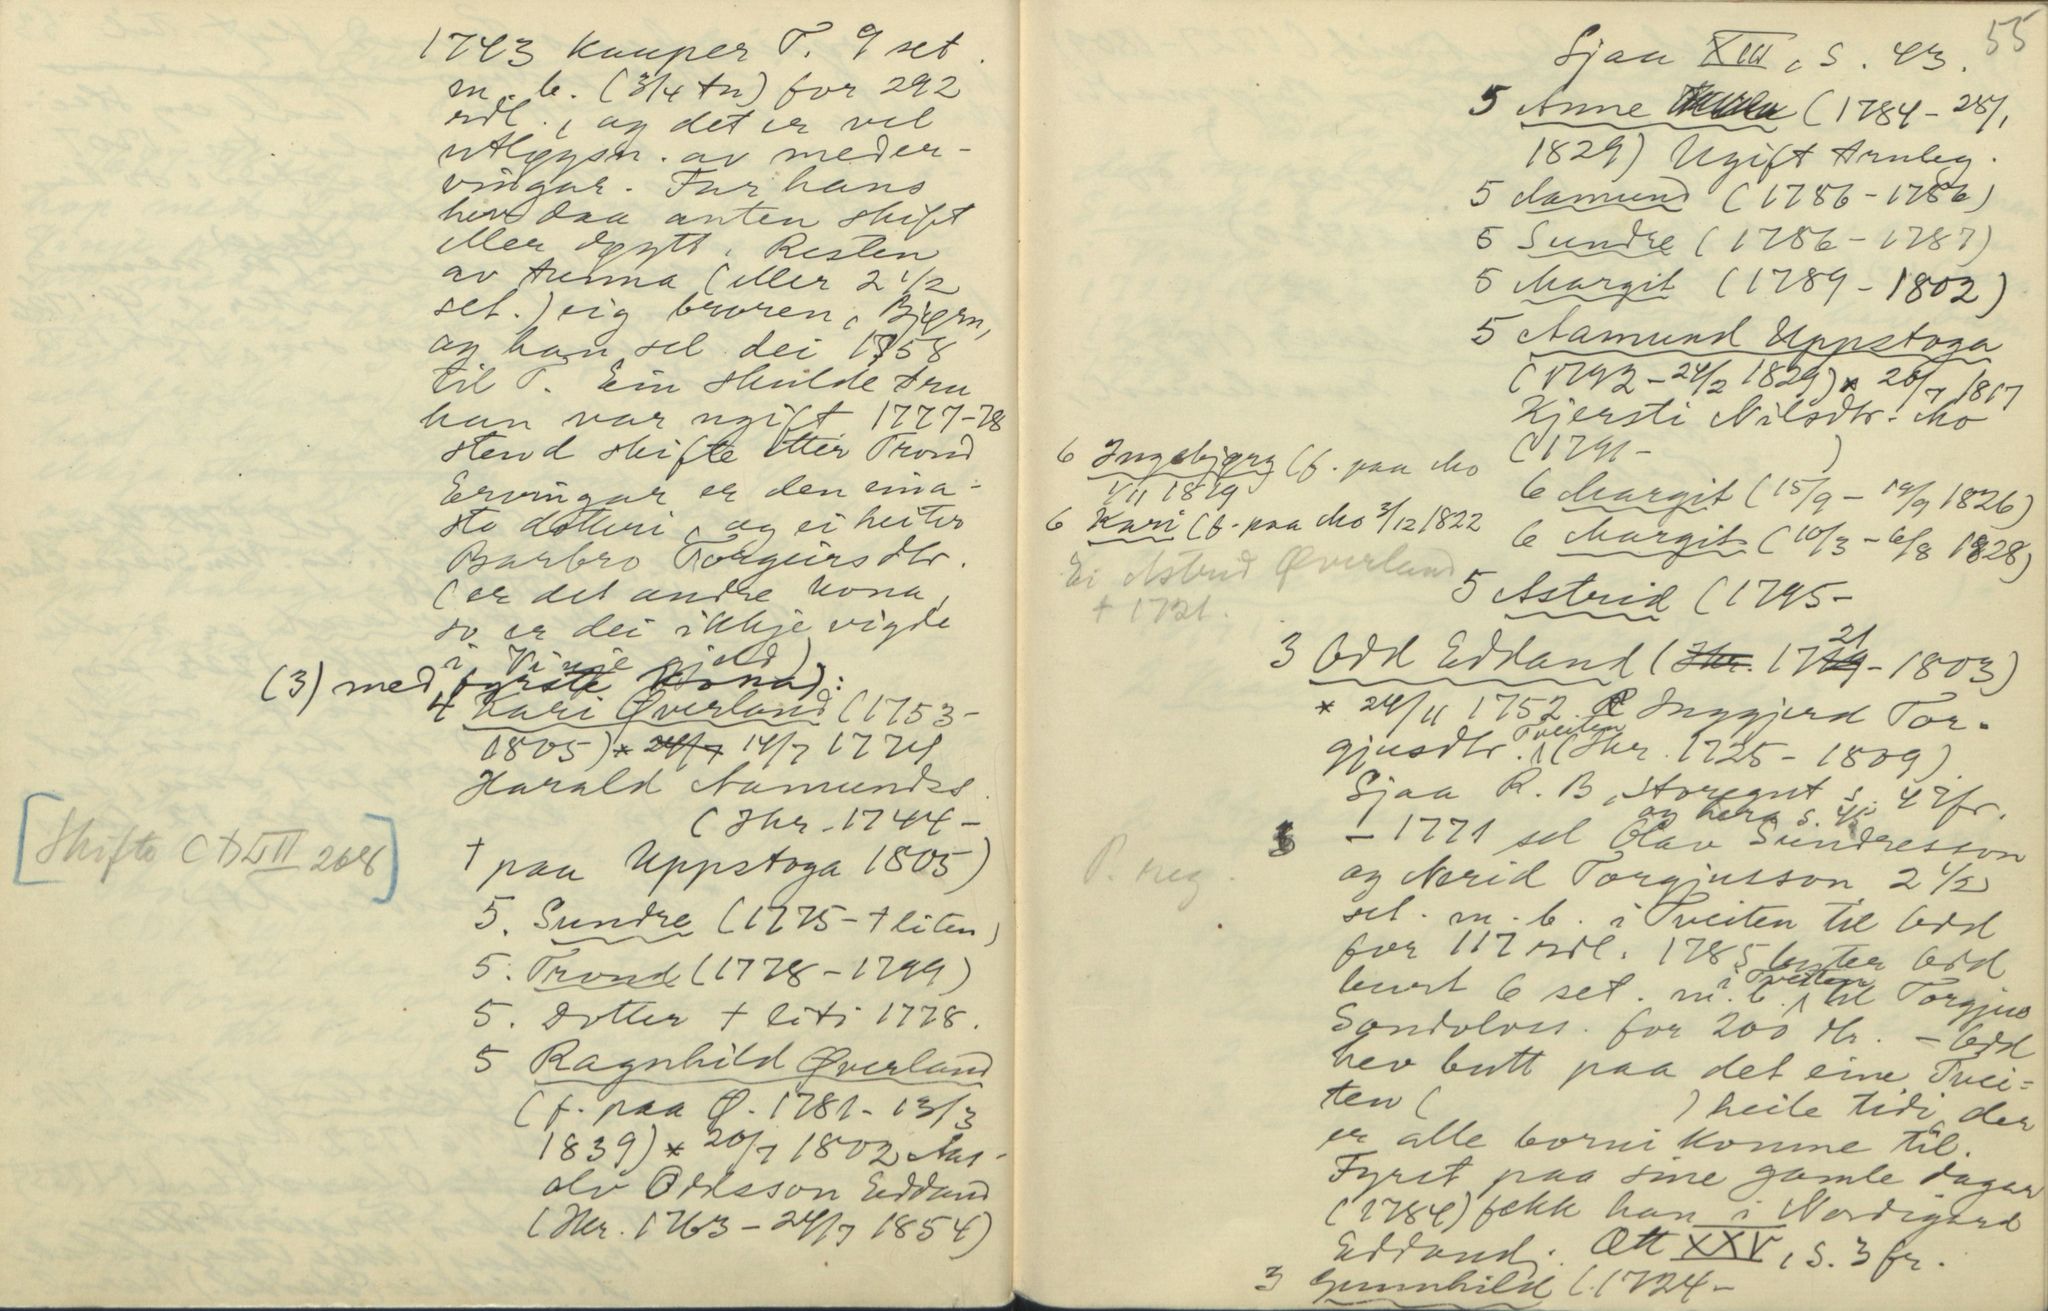 1743 kauper T. 9 set .
m. b. (3/4 tn) for 292
rdl., og det er vel
utløysn. av meder-
vingar. Far hans
hev daa anten skift
eller døytt. Resten
av tunna (eller 2 1/2
set.) eig broren, Bjørn,
og han sel dei 1758
til T. Ein skulde tru
han var ugift 1777-78
stend skifte etter Trond
Ervingar er den eina-
ste dotteri, og ei heiter
Barbro Torgeirsdtr.
(er det andre kona,
so er dei ikkje vigde
i Vinje gjeld)
(3) med fyrste kona):
4 Kari Øverland (1753-
1805) * 24/7 14/7 1774
Harald Aamundss.
(Ikr. 1744-
† paa Uppstoga 1805)
[Skifte C XVII 268]
5. Sundre (1775 - † liten)
5. Trond (1778-1799)
5. Dotter † liti 1778.
5 Ragnhild Øverland
(f. paa Ø. 1781- 13/3
1839) * 20/7 1802 Aas-
olv Oddsson Eddand
(Ikr. 1763 - 24/7 1854)
55
Sjaa XIII, S. 43.
5 Anne (1784 - 28/1
1829) Ugift trulog.
5 Aamund (1786-1786)
5 Sundre (1786-1787)
5 Margit (1789-1802)
5 Aamund Uppstoga
(1792 - 24/2 1829) * 26/7 1817
Kjersti Nilsdtr. Mo
(1791- )
6 Ingebjørg (f. paa Mo
1/11 1819
6 Kari (f. paa Mo 3/12 1822
6 Margit (15/9 - 19/9 1826)
6 Margit (10/3 - 6/8 1828)
Ei Astrid Øverland
† 1721.
5 Astrid (1795-
3 Odd Eddand (Ikr. 1719 21 - 1803)
* 24/11 1752 Inggjerd Tor-
gjusdtr. Tveiten (Ikr. 1725 - 1809)
Sjaa R. B, Storegut s. 47fr.
og hera s. 45
- 1771 sel Olav Sundresson
P. neg.
og Nerid Torgjusson 2 1/2
set. m. b. i Tveiten til Odd
for 117 rdl. 1785 byter Odd
burt 6 set. m. b. i Tveiten til Torgjus
Sondoloss. for 200 dlr. - Odd
hev butt paa det eine Tvei-
ten ( ) heile tidi, der
er alle borni komne til.
Fyrst paa sine gamle dagar
(1784) fekk han i Nordigard
Eddand. Ætt XXV, S. 3 fr.
3 Gunnhild (1724-